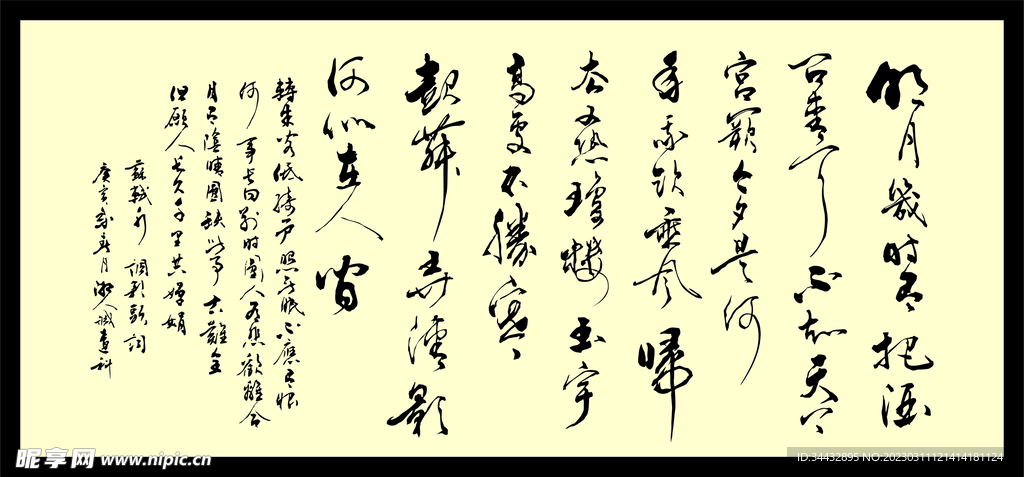 明月幾时有把酒
问青天不知天上
宫闕今夕是何
年我欲乘风歸
去又恐瓊樓玉宇
高處不勝寒
起舞弄清影
何似在人间
轉朱阁低綺户照无眠不應有恨
何事长向别时圆人有悲歡離合
月有陰晴圆缺此事古難全
但願人长久千里共嬋娟
蘇軾水調歌頭词
歲春月
昵享网 www.nipic.cn
ID:34432895 NO:20230311121414181124